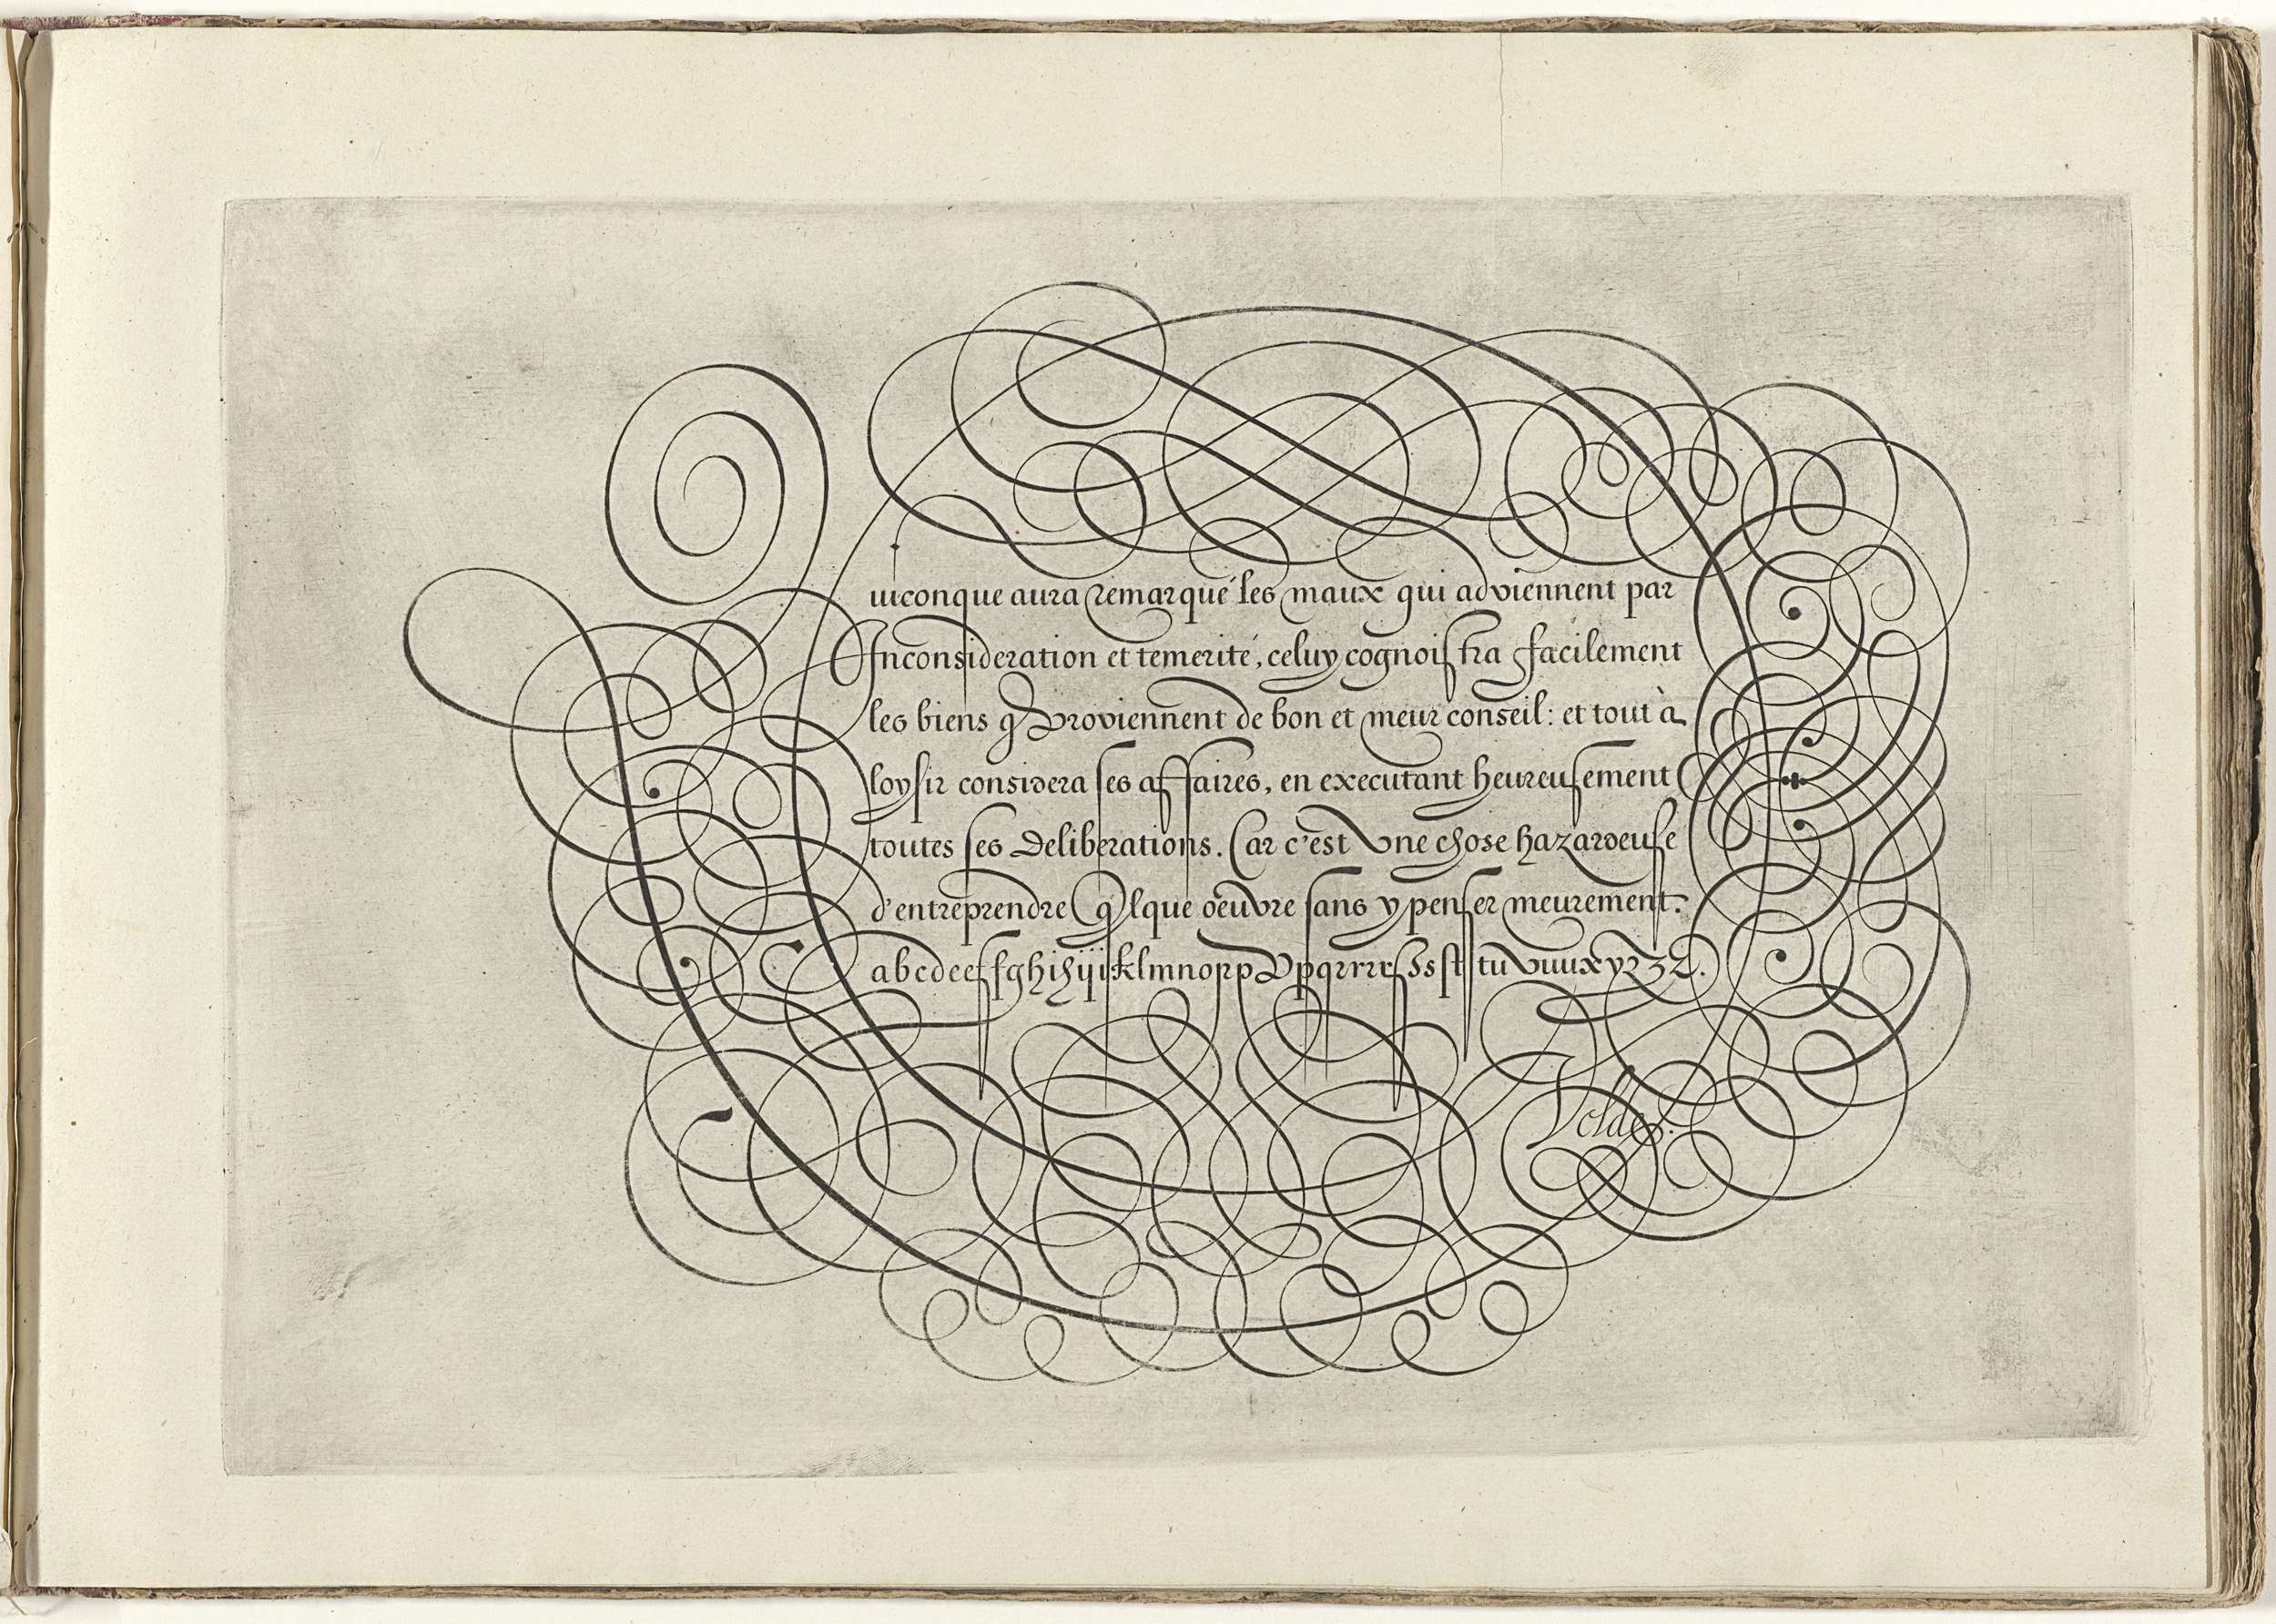 Quiconque aura remarqué les maux qui adviennent par
Inconsideration et temerité, celuy cognoistra facilement
les biens q̃ proviennent de bon et meur conseil: et tout à
loysir considera ses affaires, en executant heureusement
toutes ses deliberations. Car c'est vne chose hazardeuse
d'entreprendre q̃lque oeuvre sans y penser meurement.
abcdeeffghihijijkklmnoppppqrrrsssstuvuuxyzzz.
Velde.